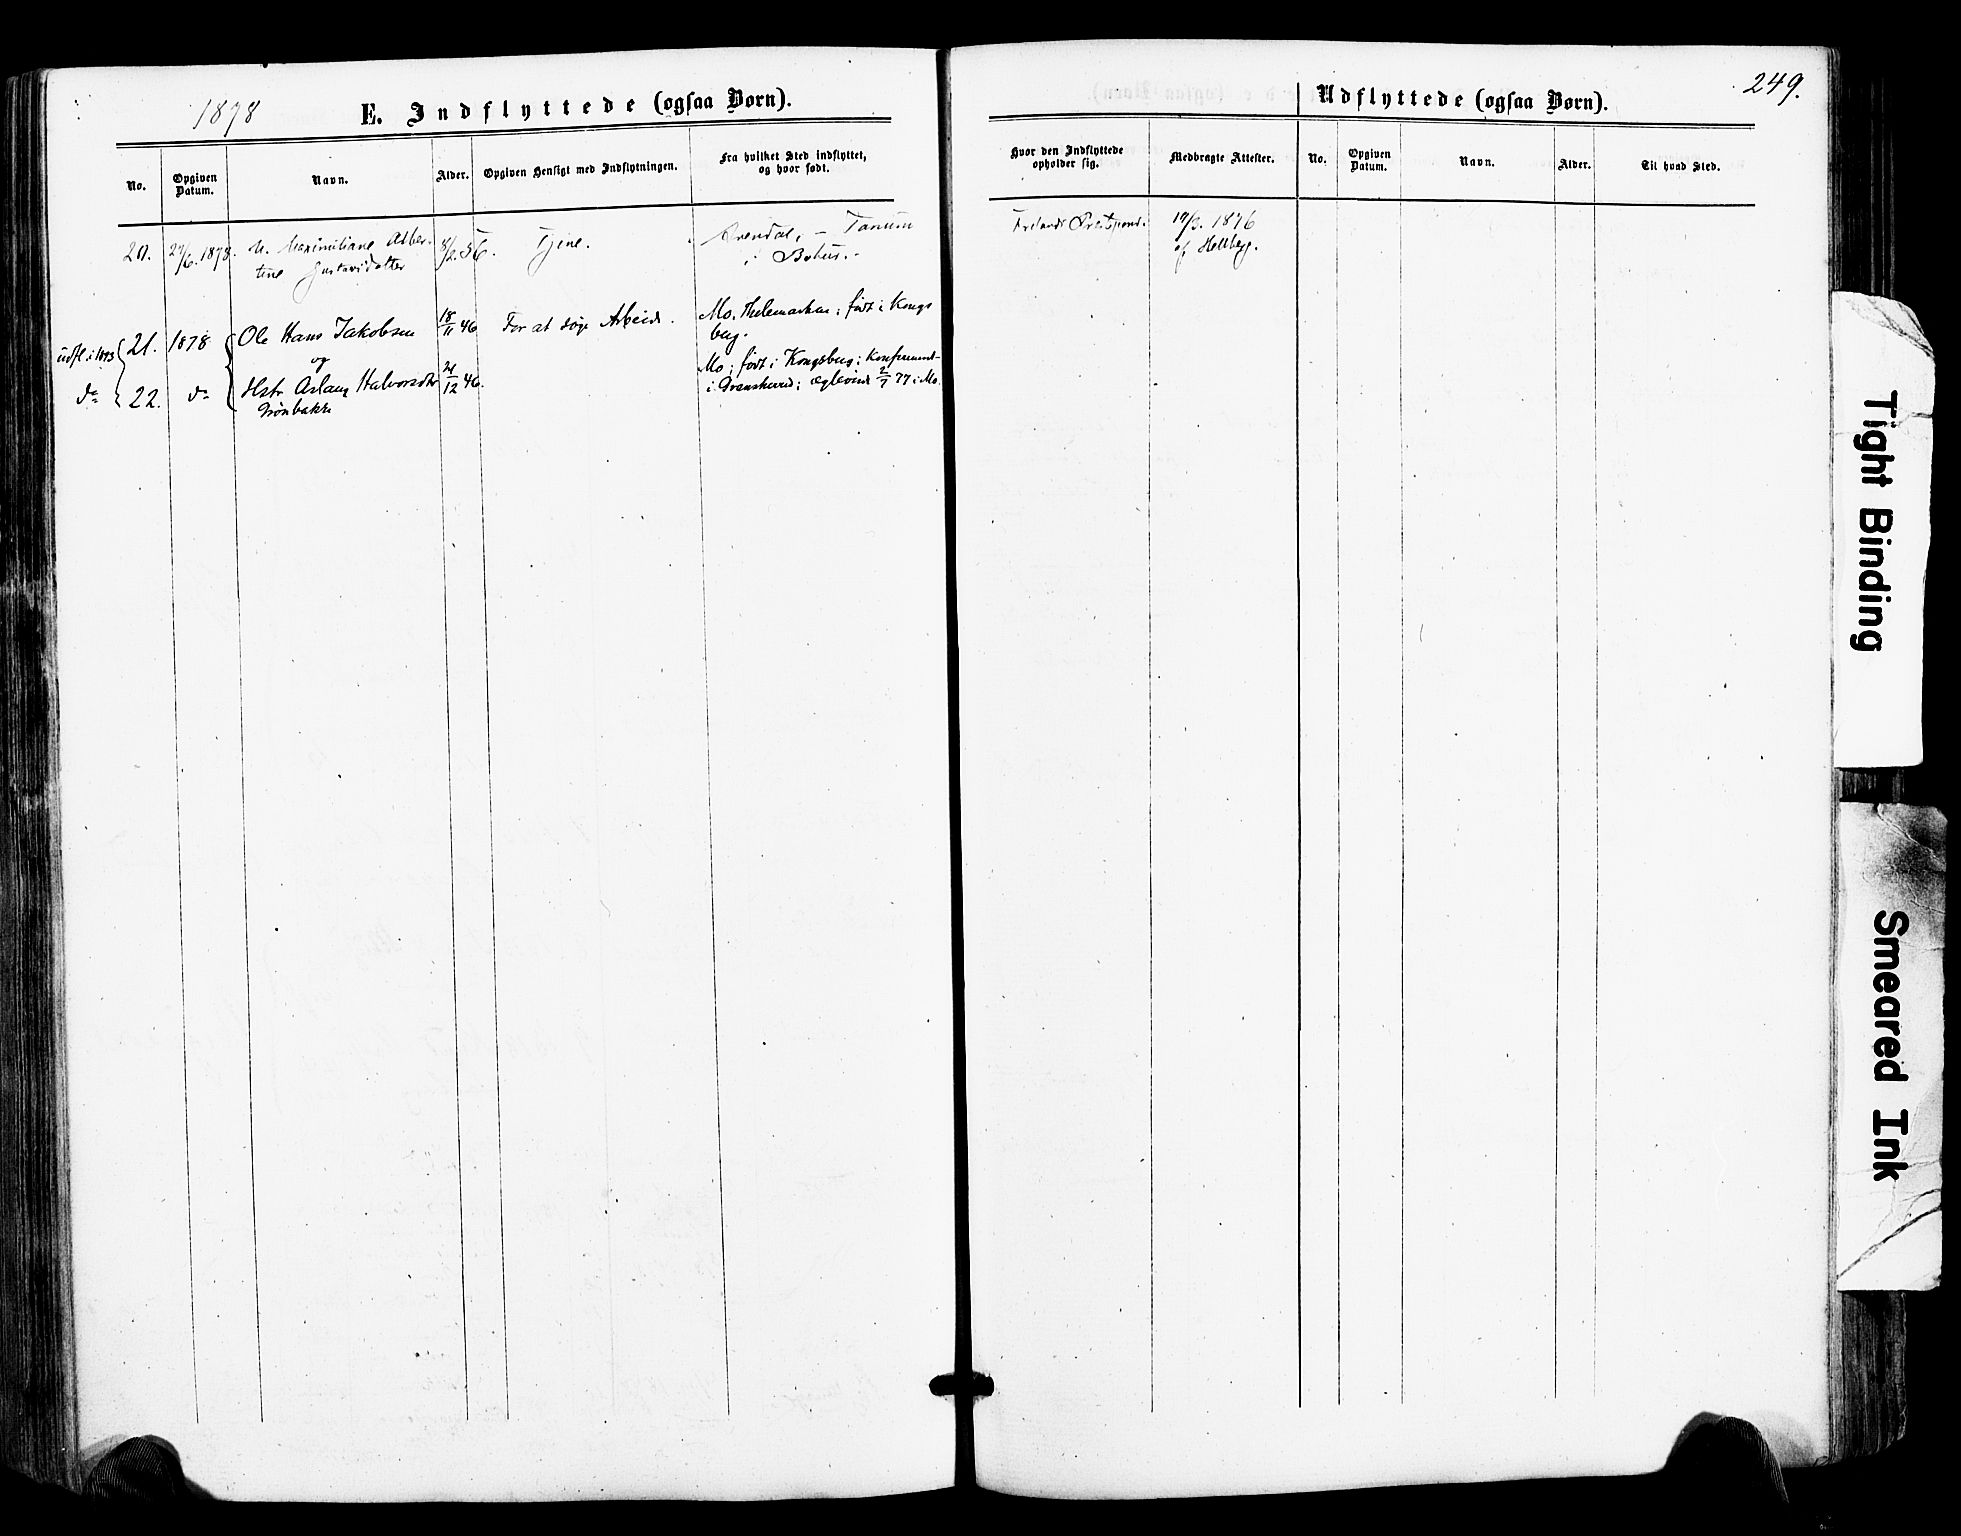 1878
E. Indflyttede (ogsaa Børn).
No.
Opgiven Datum.
Navn.
Alder.
Opgiven Hensigt med Indflytningen.
Fra hvilket Sted indflyttet,
og hvor født.
20. 27/6. 1878. Maximiliane Alber- 8/2. 56. Tjene. Arendal, – Tanum
tine Gustavsdatter i Bohus.
21. 1878 Ole Hans Jakobsen 18/11 46 For at søge Arbeide. Mo, Thelemarken; født i Kongs
berg.
udfl. i 1893
og
do 22. do Hstr Aslaug Halvorsdtr 24/12 46. Mo; født i Kongsberg; Konfirmert
Grönbakke i 2/7 77 i Mo.
249.
Udflyttede (ogsaa Børn).
Hvor den Indflyttede
opholder sig.
Medbragte Attester.
No.
Opgiven
Datum.
Navn.
Alder.
Til hvad Sted.
19/3. 1876
af Hellberg.
Tight Binding
Smeared Ink